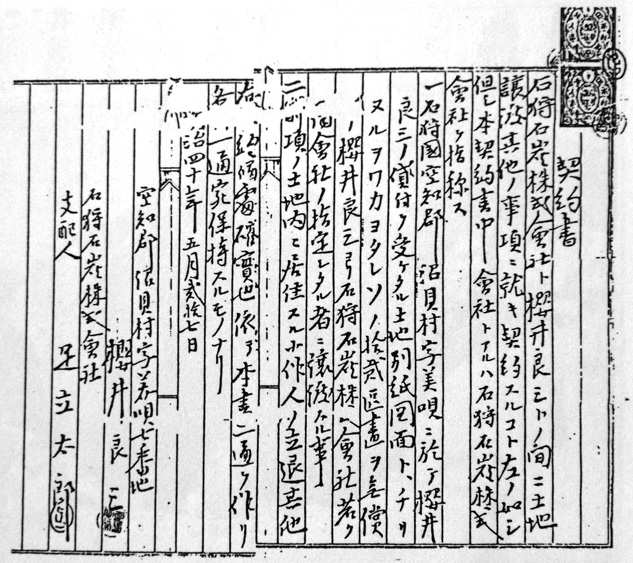 契約書
石狩石炭株式會社ト櫻井良三トノ間ニ土地
讓渡其他ノ事項ニ就キ契約スルコト左ノ如シ
但シ本契約書中會社トアルハ石狩石炭株式
會社ヲ指称ス
一石狩國空知郡沼貝村字美唄ニ於テ櫻井
良三ノ貸付ヲ受ケタル土地別紙図面ト
ノ拾貳區畫ヲ無償
櫻井良三ヨリ石狩石炭株式會社若ク
會社ノ指定シタル者ニ讓渡スル事
項ノ土地内ニ居住スル小作人ノ立退其他
確實也依テ本書二通ヲ作リ
各一通宛保持スルモノナリ
治四十年五月貳拾七日
空知郡沼貝村字美唄七番地
櫻井良三
石狩石炭株式會社
支配人
足立太郎